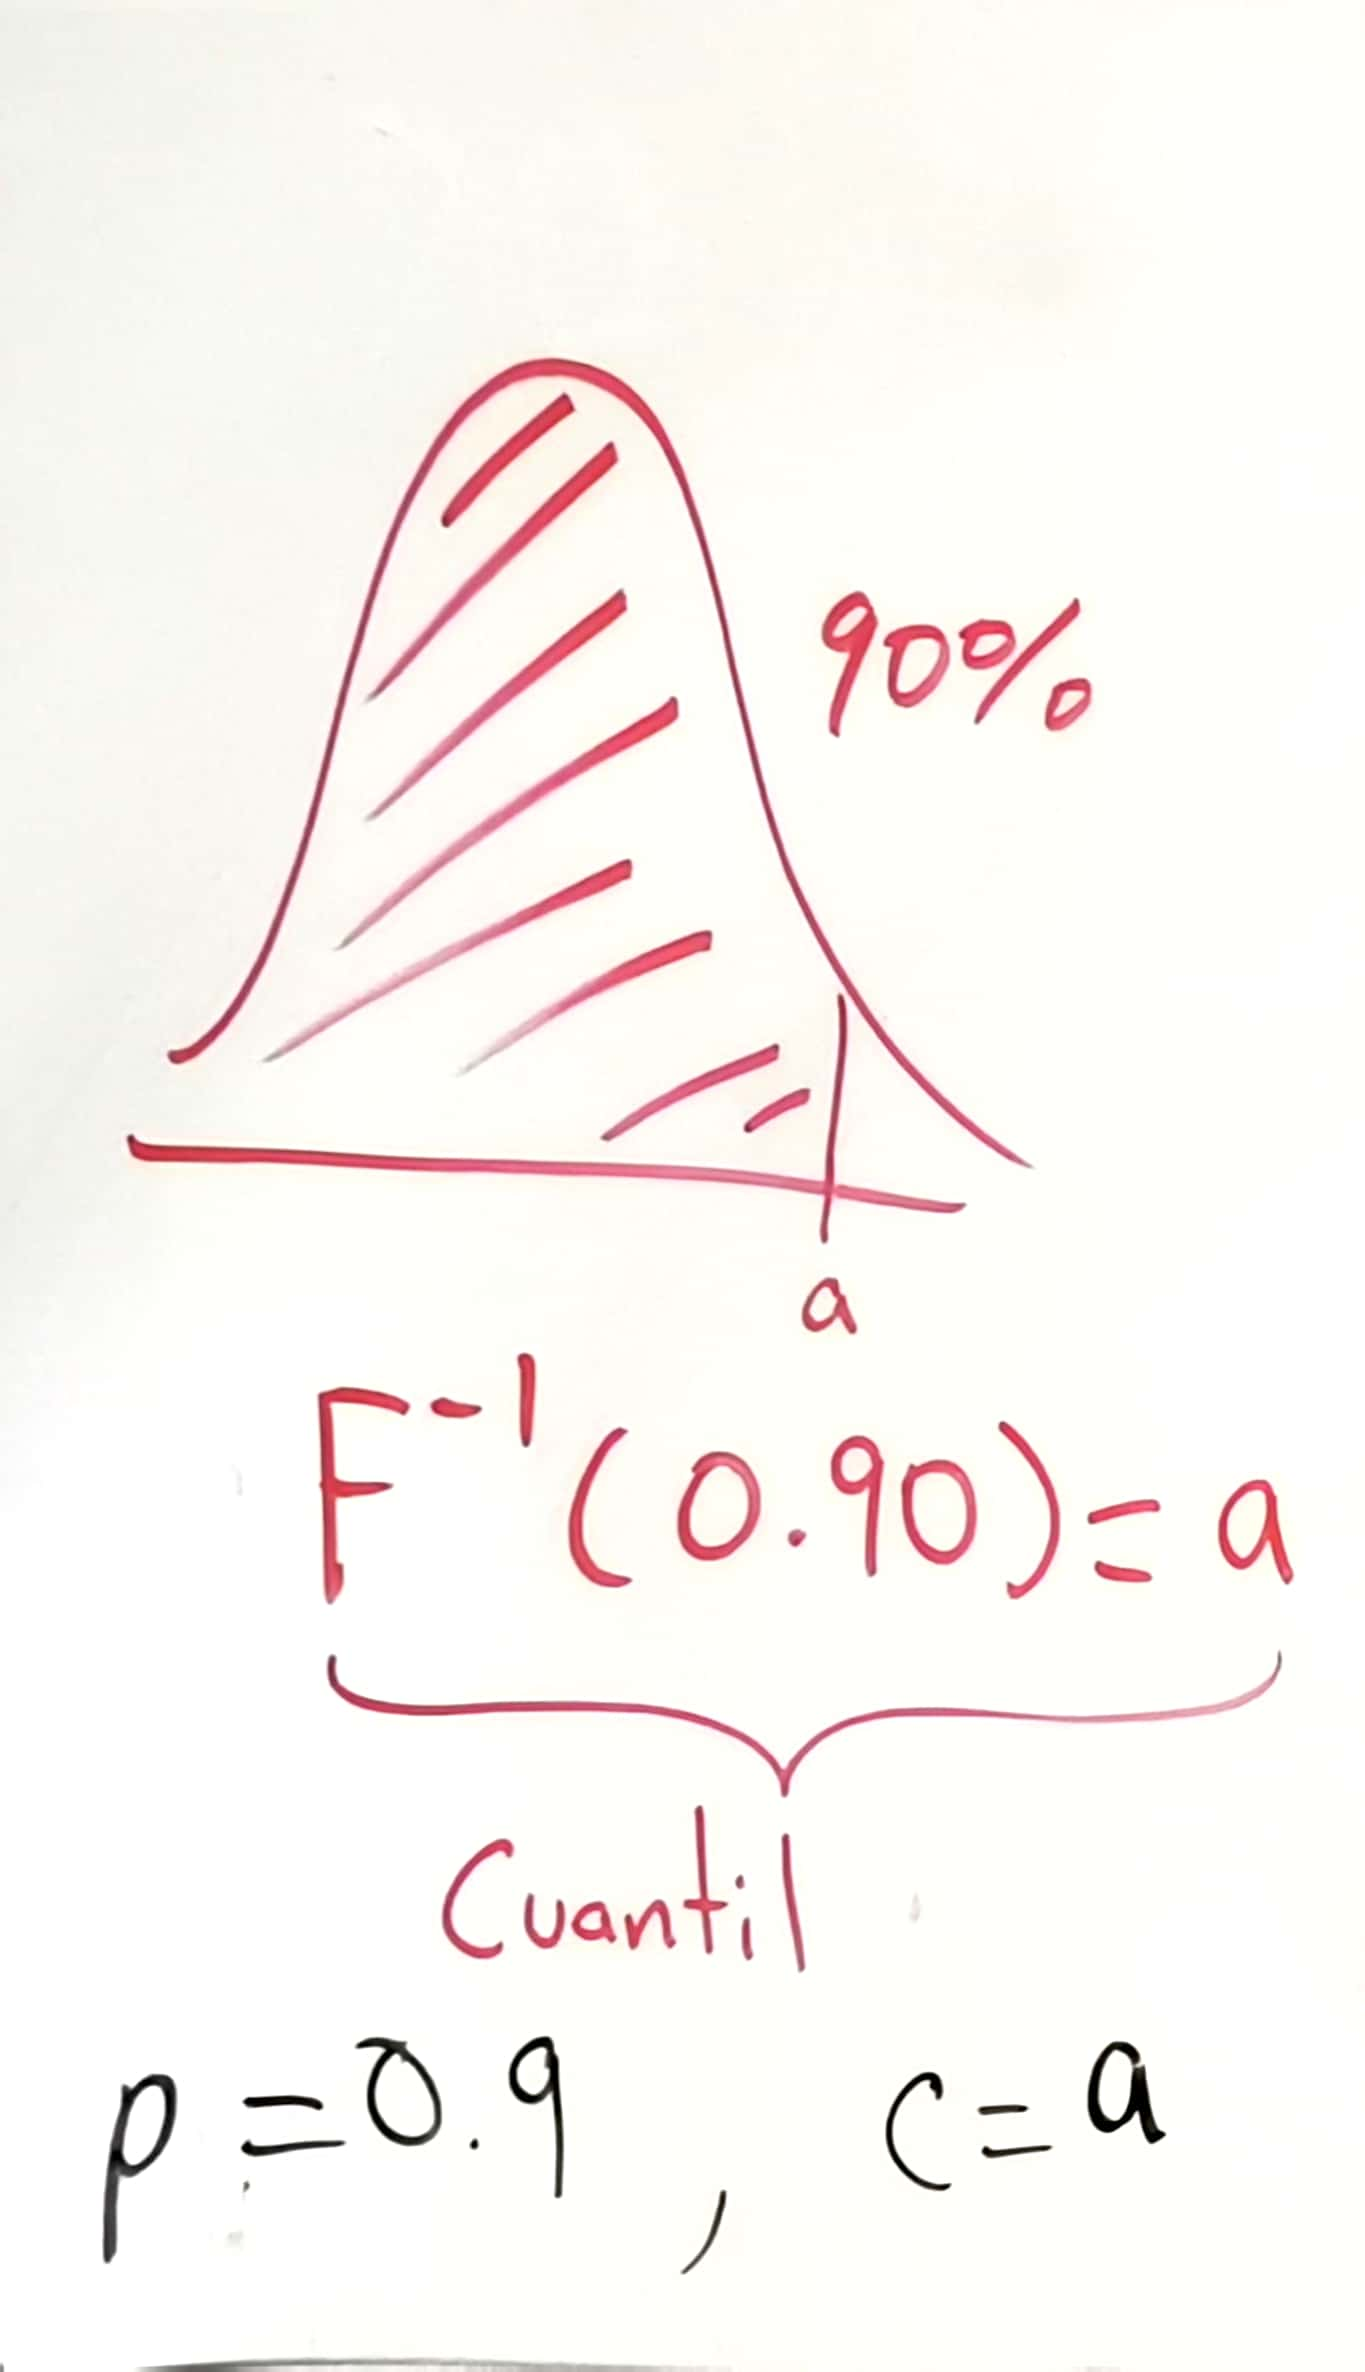 90%
a
F⁻¹(0.90)=a
Cuantil
p=0.9, c=a